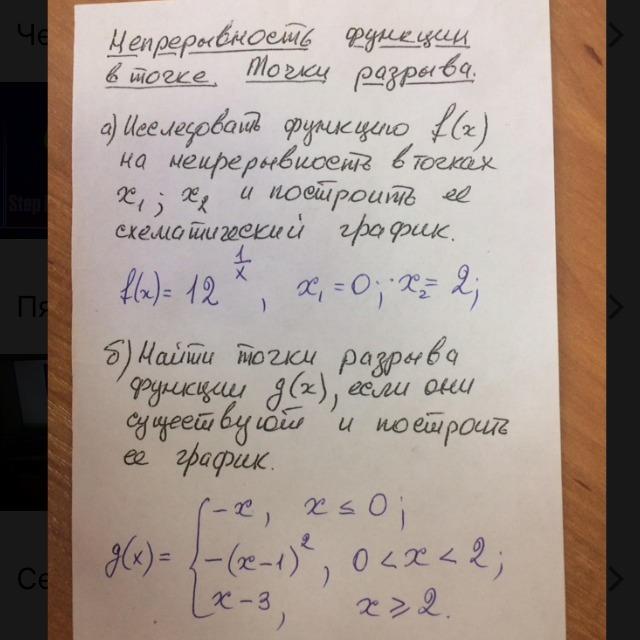 Че
Непрерывность функции
в точке. Точки разрыва.
а) Исследовать функцию f(x)
на непрерывность в точках
x₁; x₂ и построить ее
схематический график.
f(x) = 12^(1/x), x₁ = 0; x₂ = 2;
Пя
б) Найти точки разрыва
функции g(x), если они
существуют и построить
ее график.
g(x) = { -x, x ≤ 0;
-(x-1)², 0 < x < 2;
x-3, x ⩾ 2.
Се